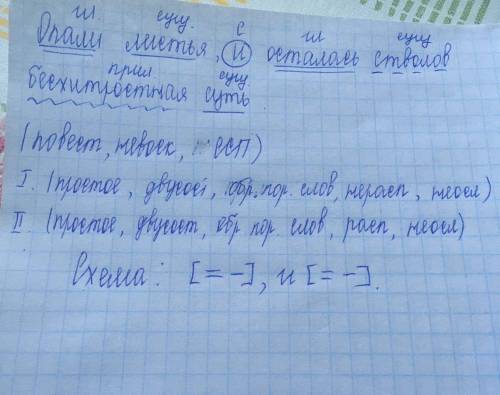 гл. сущ. с гл сущ
Опали листья, и осталась стволов
прил сущ
бесхитростная суть.
(повест, невоск, ССП)
I. (простое, двусос, обр. пор. слов, нерасп, неосл)
II. (простое, двусост, обр пор. слов, расп, неосл)
Схема: [= -], и [= -].